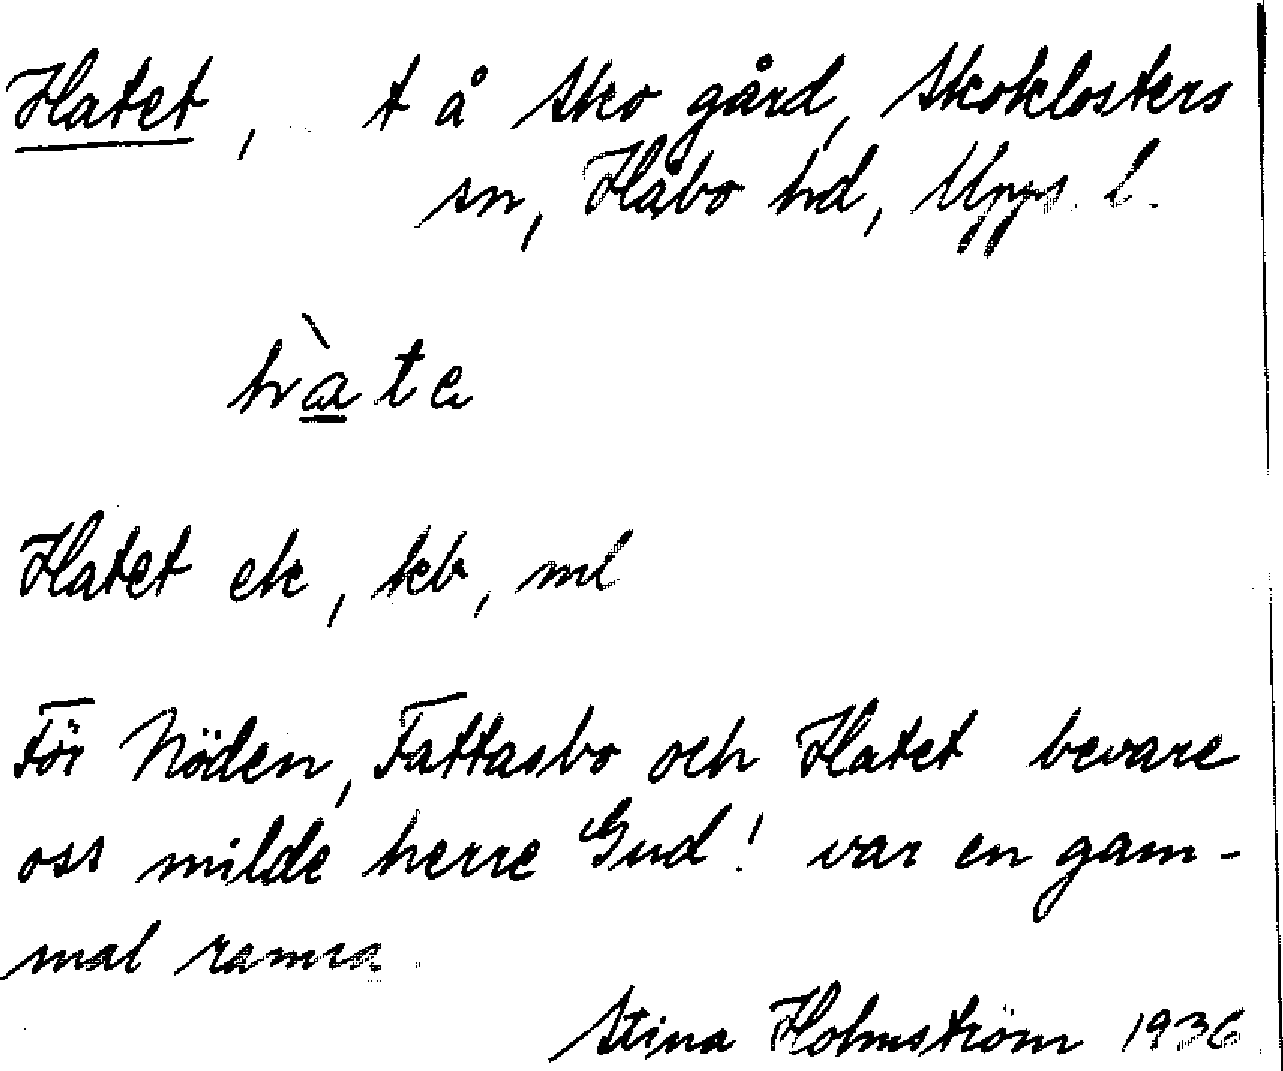 Hatet, t å Sko gård, Skoklosters
sn, Håbo hd, Upps. l.
hàte
Hatet ek, kb, ml
För Nöden, Fattasbo och Hatet bevare
oss milde herre Gud! var en gam-
mal ramsa.
Stina Holmström 1936